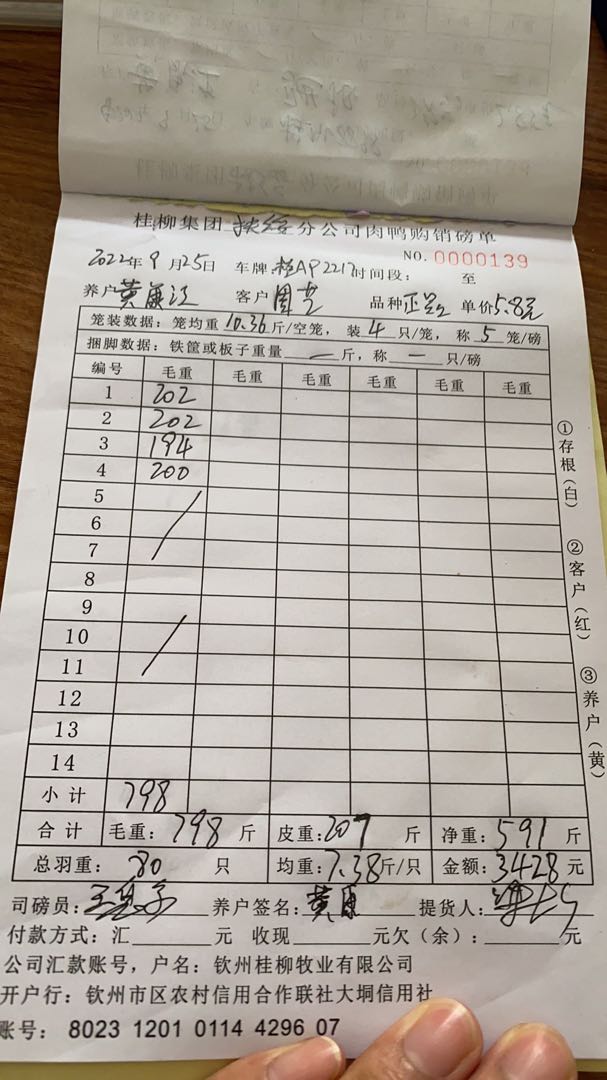 桂柳集团扶绥分公司肉鸭购销磅单
NO.0000139
2022年9月25日 车牌 桂AP2217 时间段: 至
养户 黄康江 客户 周芝 品种 单价5.8元
笼装数据:笼均重10.36斤/空笼,装4只/笼,称5笼/磅
捆脚数据:铁筐或板子重量—斤,称—只/磅
编号 毛重 毛重 毛重 毛重 毛重 毛重
1 202
2 202
3 194
4 200
5
6
7
8
9
10
11
12
13
14
小计 798
合计 毛重:798斤 皮重:207斤 净重:591斤
总羽重:80只 均重:7.38斤/只 金额:3428元
司磅员: 养户签名:黄康 提货人:
付款方式:汇 元 收现 元欠(余): 元
公司汇款账号,户名:钦州桂柳牧业有限公司
开户行:钦州市区农村信用合作联社大垌信用社
账号:8023 1201 0114 4296 07
①存根(白)
②客户(红)
③养户(黄)